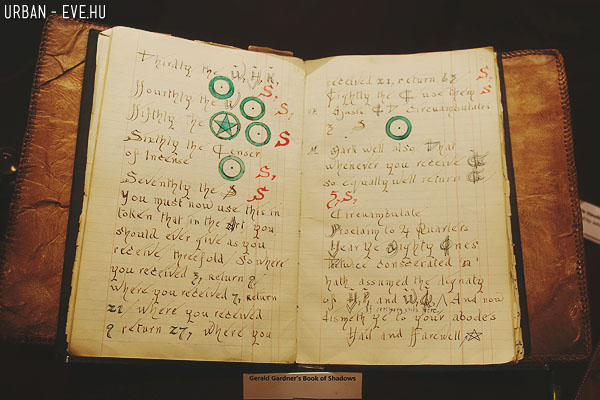 URBAN - EVE.HU
Thirdly the W.H.K.
Fourthly the W
S,
Fifthly the
S,
S
Sixthly the Censer
of Incense
S,
Seventhly the S
S
You must now use this in
token that in the Art you
should ever give as you
receive threefold. So where
you received 3, return 9,
where you received 7, return
21, where you received
9 return 27, where you
received 21, return 63
S,
Eightly the use them
S
Circumambulates
Mark well also that
whenever you receive
so equally well return
S,S,
Circumambulate
Proclaim to 4 Quarters
Hear Ye Mighty Ones
Twice consecrated
hath assumed the dignity
of and And now
dismeth ye to your abodes
Hail and Farewell,
Gerald Gardner's Book of Shadows